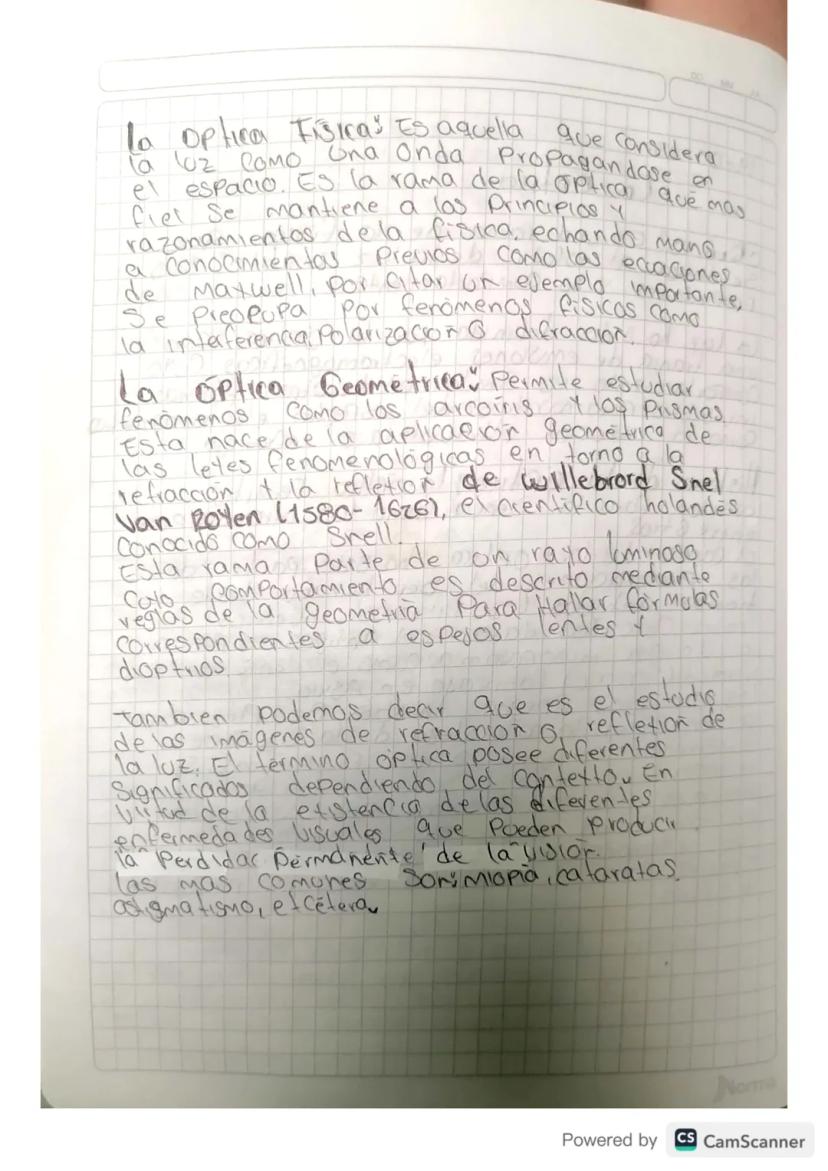 la optica Física: Es aquella que considera
la luz como una onda Propagandose en
el espacio. Es la rama de la óptica que mas
fiel se mantiene a los Principios y
razonamientos dela física. echando mano,
a conocimientos Previos como las ecuaciones
de Maxwell, por citar un ejemplo importante,
Se Preocupa Por fenómenos físicos como
la inteferencia, Polarización O difracción.
La óptica Geométrica: Permite estudiar
fenómenos como los arcoíris y los Prismas
Esta nace de la aplicación geométrica de
las leyes fenomenológicas en torno a la
refracción y la reflexión de willebrord Snel
Van Royen (1580-1626), el científico holandés
Conocido como Snell.
Esta rama Parte de un rayo luminoso
Cuyo comportamiento es descrito mediante
reglas de la geometría Para Hallar fórmulas
correspondientes a espejos lentes y
dioptrios
también podemos decir que es el estudio
de las imágenes de refracción O reflexión de
la luz. El término óptica posee diferentes
significados dependiendo del contexto. En
virtud de la existencia delas diferentes
enfermedades visuales que Pueden producir
la Perdidac Permanente de la visión.
las mas comunes Son: Miopía, cataratas,
astigmatismo, etcétera.
Norma
Powered by CS CamScanner